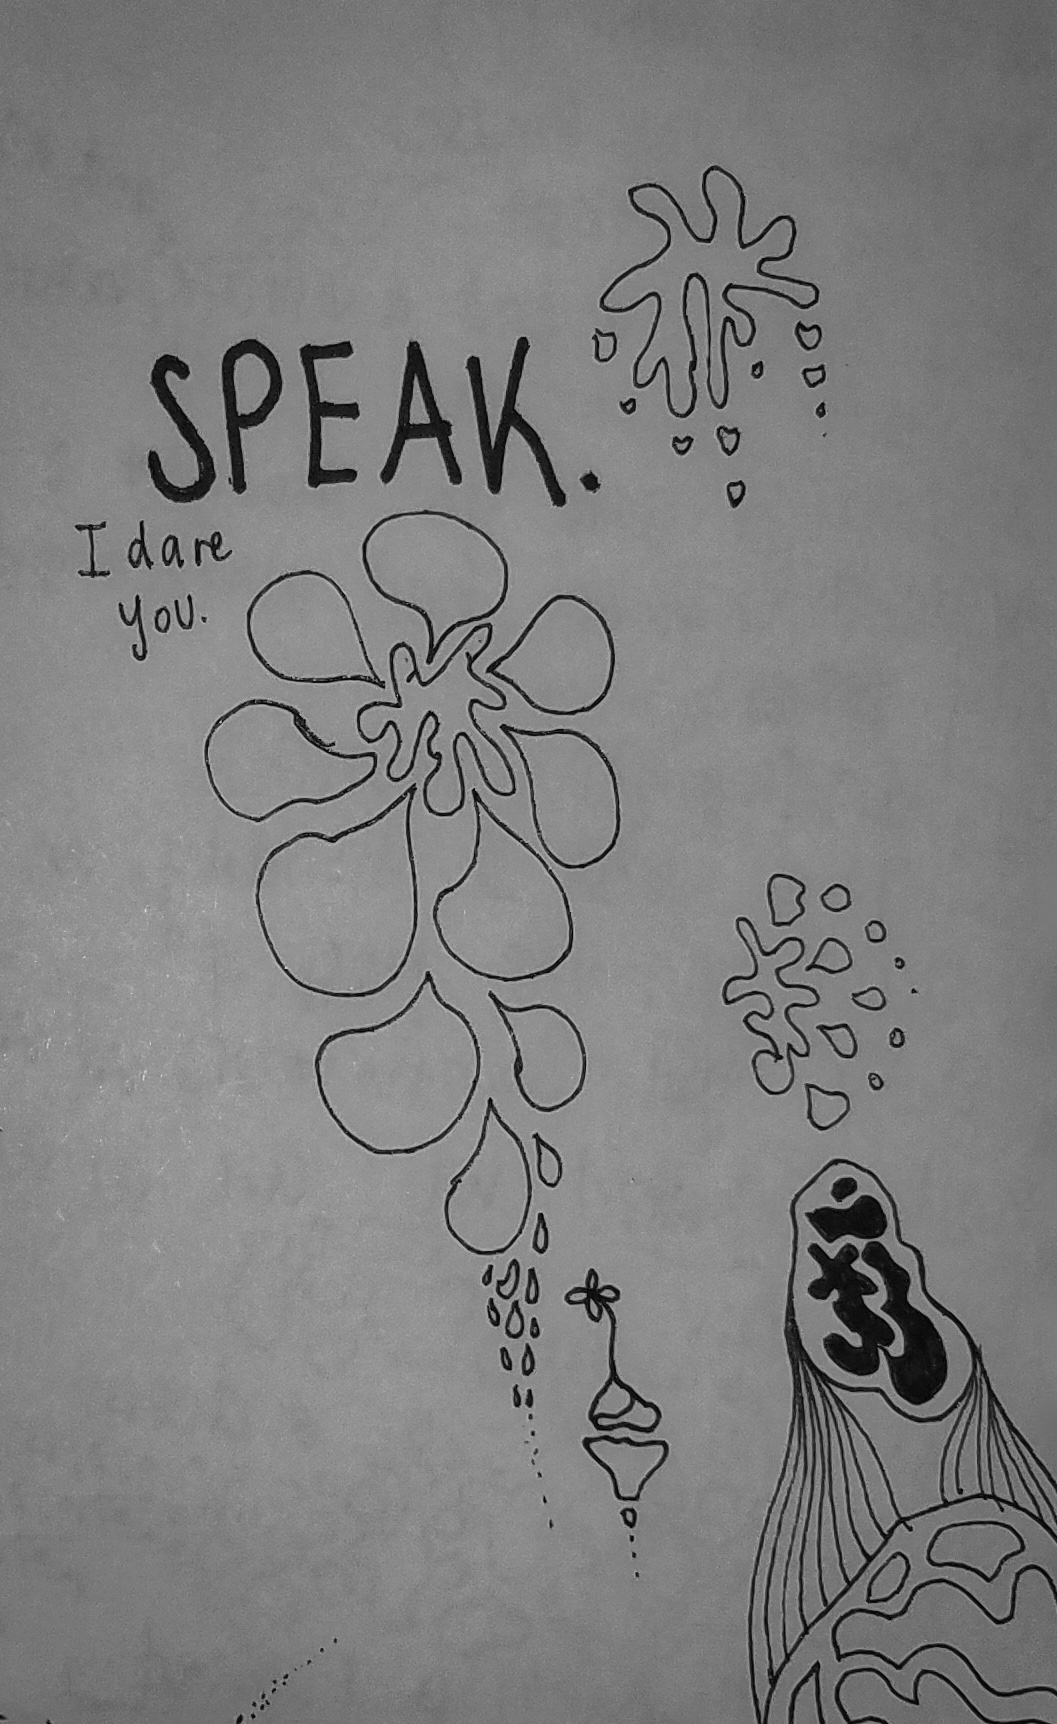 SPEAK.
I dare
you.